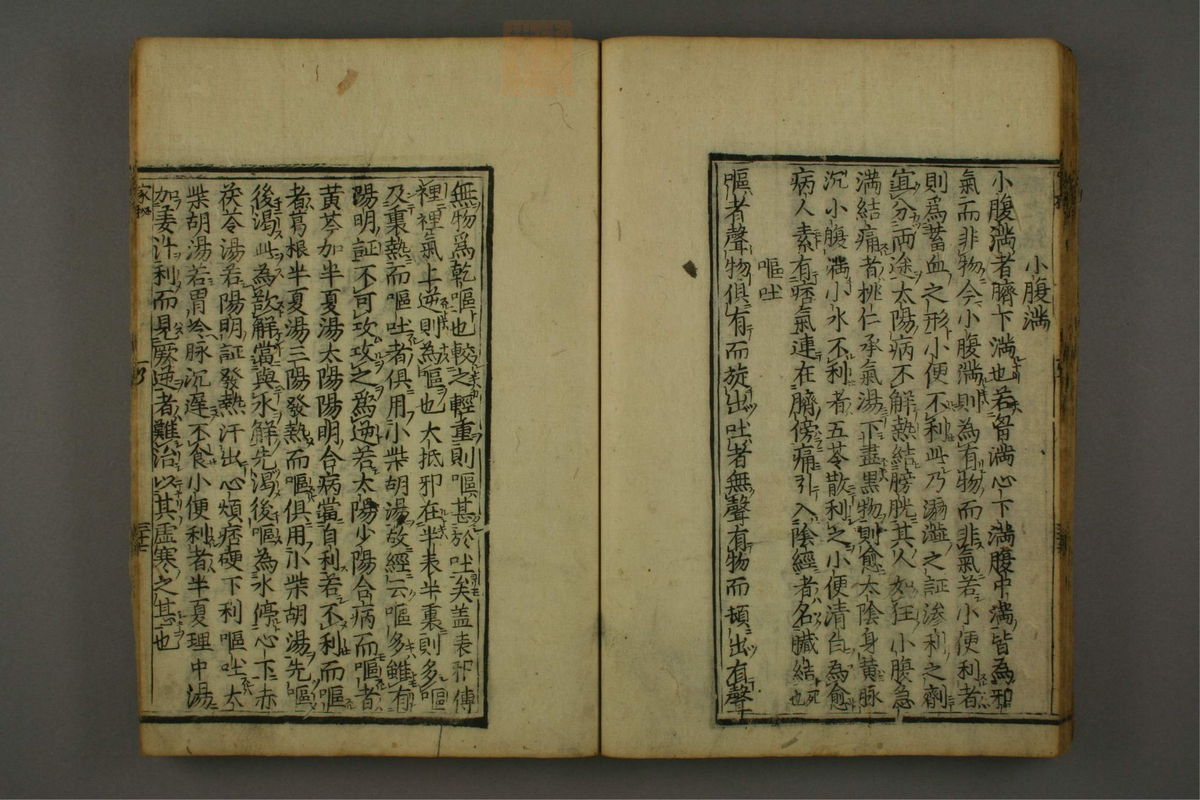 小腹満
小腹満者臍下満也若胷満心下満腹中満皆為邪
氣而非物今小腹満則為有物而非氣若小便利者
則爲蓄血之形小便不利此乃溺澁之証滲利之劑
宜分両途太陽病不解熱結膀胱其人如狂小腹急
満結痛者桃仁承氣湯下盡黒物則愈太陰身黄脉
沉小腹満小水不利者五苓散利之小便清白為愈
病人素有痞氣連在臍傍痛引入陰經者名臓結也
嘔吐
嘔者聲物俱有而旋出吐者無聲有物而頓出有聲
無物爲乾嘔也較之輕重則嘔甚於吐矣盖表邪傳
裡裡氣上逆則為嘔也大抵邪在半表半裏則多嘔
及裏熱而嘔吐者俱用小柴胡湯故經云嘔多雖有
陽明証不可攻攻之爲逆若太陽少陽合病而嘔者
黄芩加半夏湯太陽陽明合病當自利若不利而嘔
者葛根半夏湯三陽發熱而嘔俱用小柴胡湯先嘔
後渴此為欲解當與水解先渴後嘔為水停心下赤
茯苓湯若陽明証發熱汗出心煩痞硬下利嘔吐大
柴胡湯若胃冷脉沉遲不食小便利者半夏理中湯
加姜汁利而見厥逆者難治以其虚寒之甚也